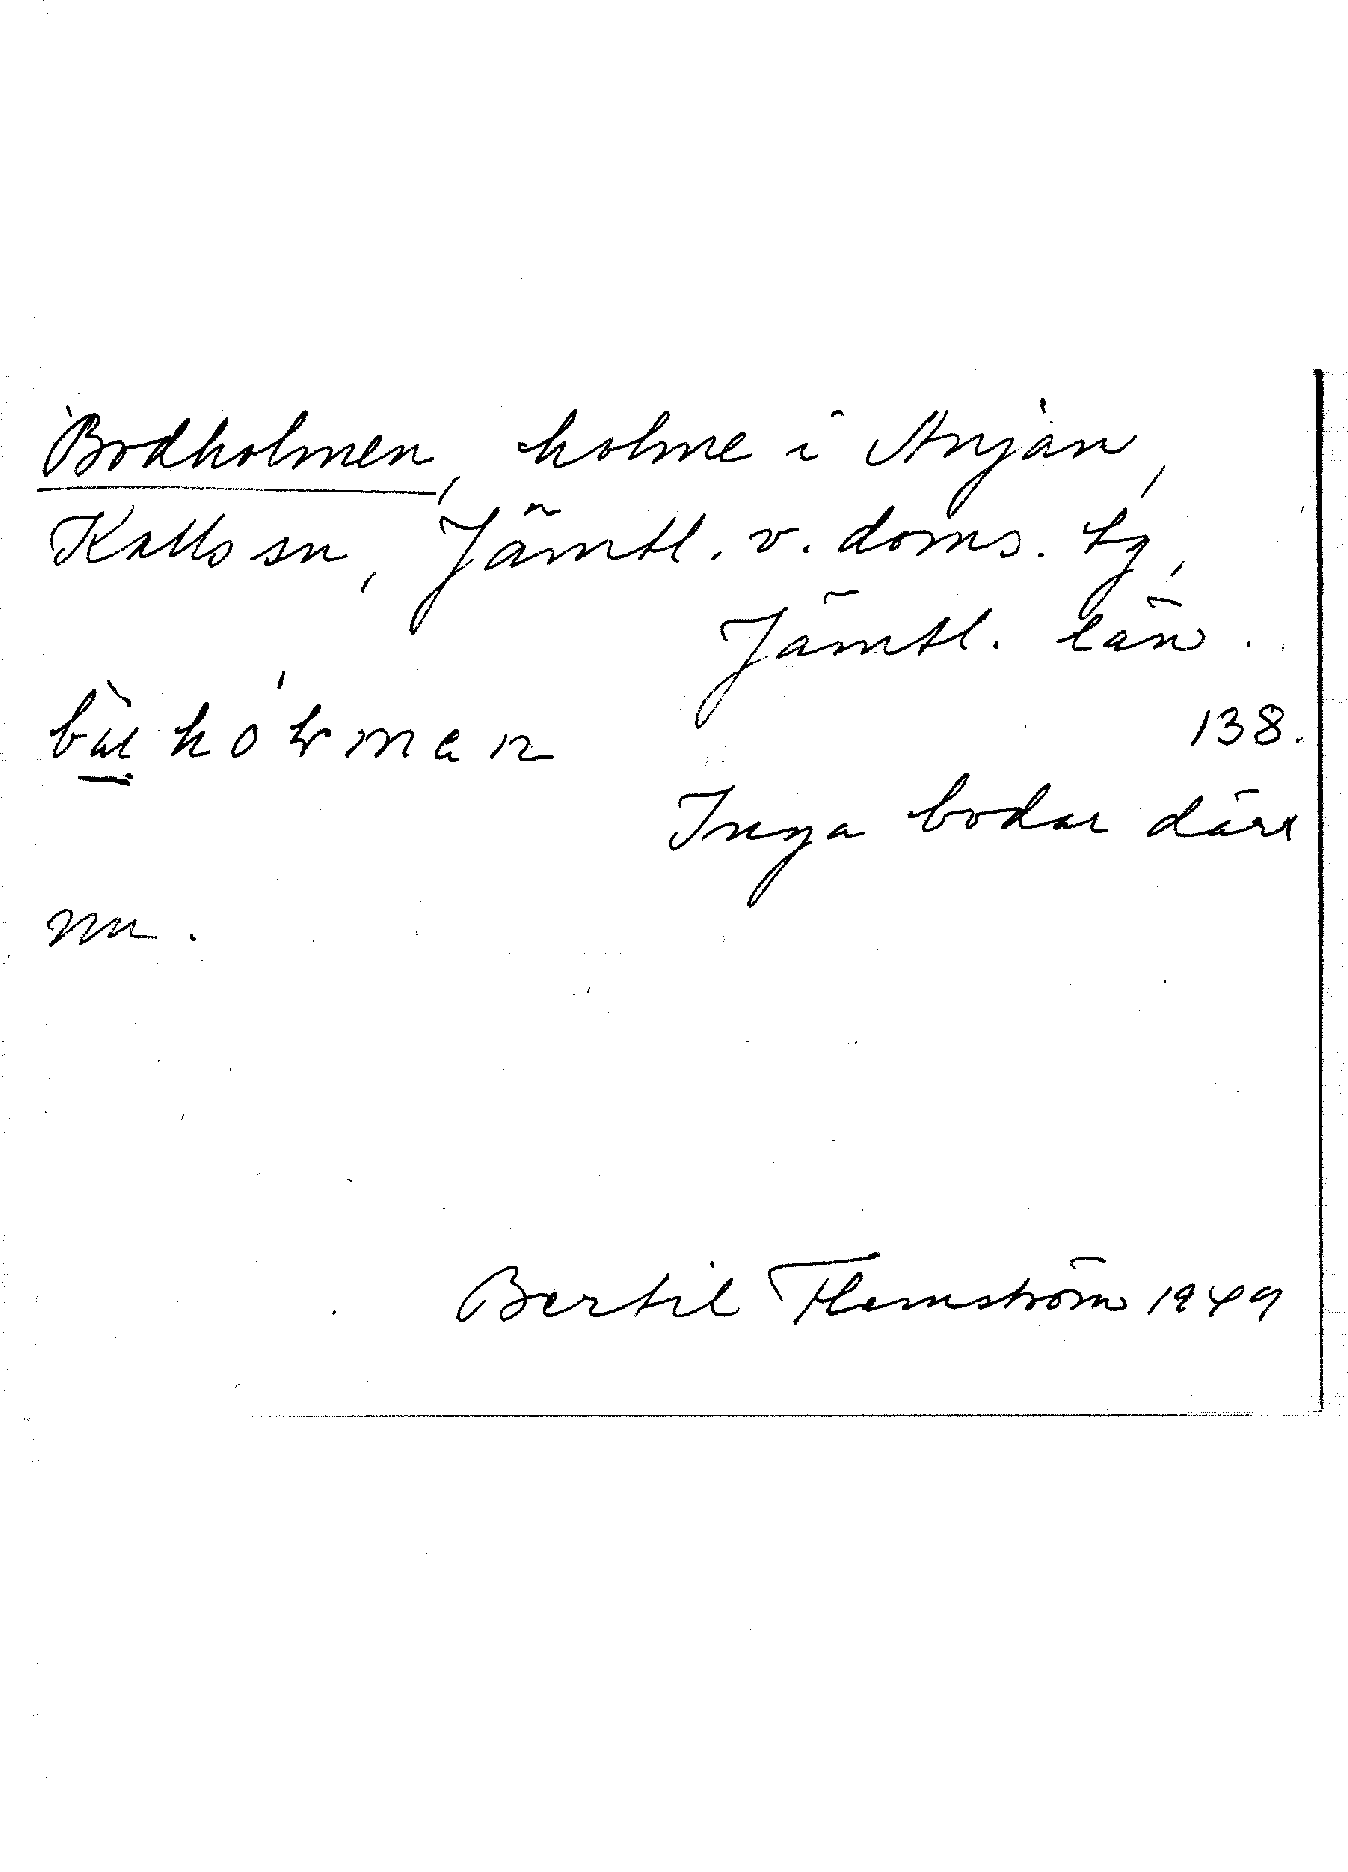 Bodholmen, holme i Anjan,
Kalls sn, Jämtl. v. doms. tg,
Jämtl. län.
138.
Inga bodar där
nu.
Bertil Flemström 1949